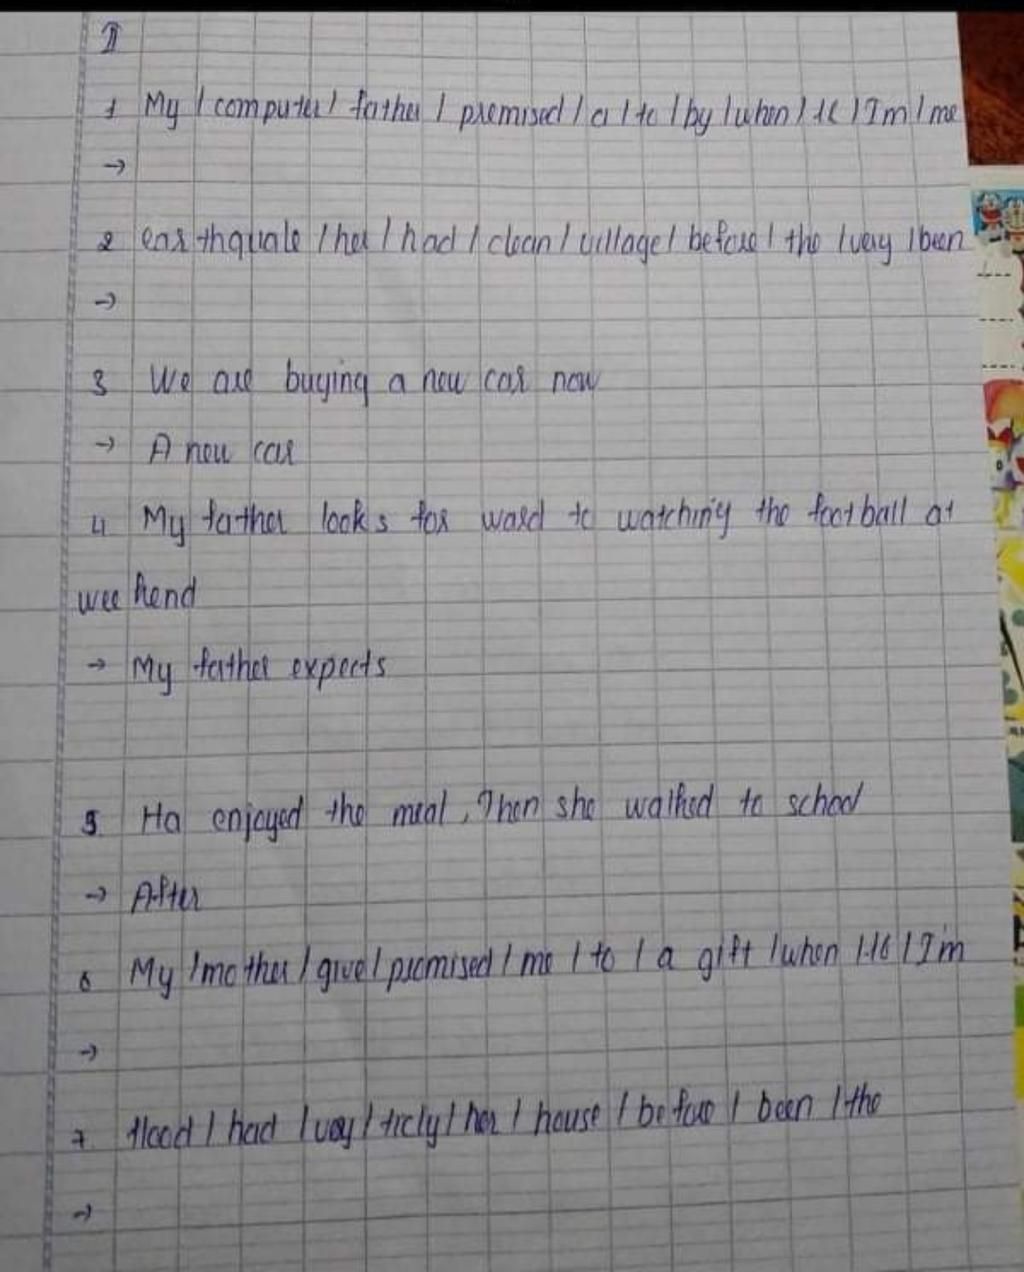 II
1 My / computer / father / promised / a / to / by / when / 16 / I'm / me
→
2 earthquale / her / had / clean / village / before / the / very / been
→
3 We are buying a new car now
→ A new car
4 My father looks for ward to watching the football at
weekend
→ My father expects
5 Ha enjoyed the meal, Then she walked to school
→ After
6 My / mother / give / promised / me / to / a gift / when / 16 / I'm
→
7 flood / had / very / ticly / her / house / before / been / the
→